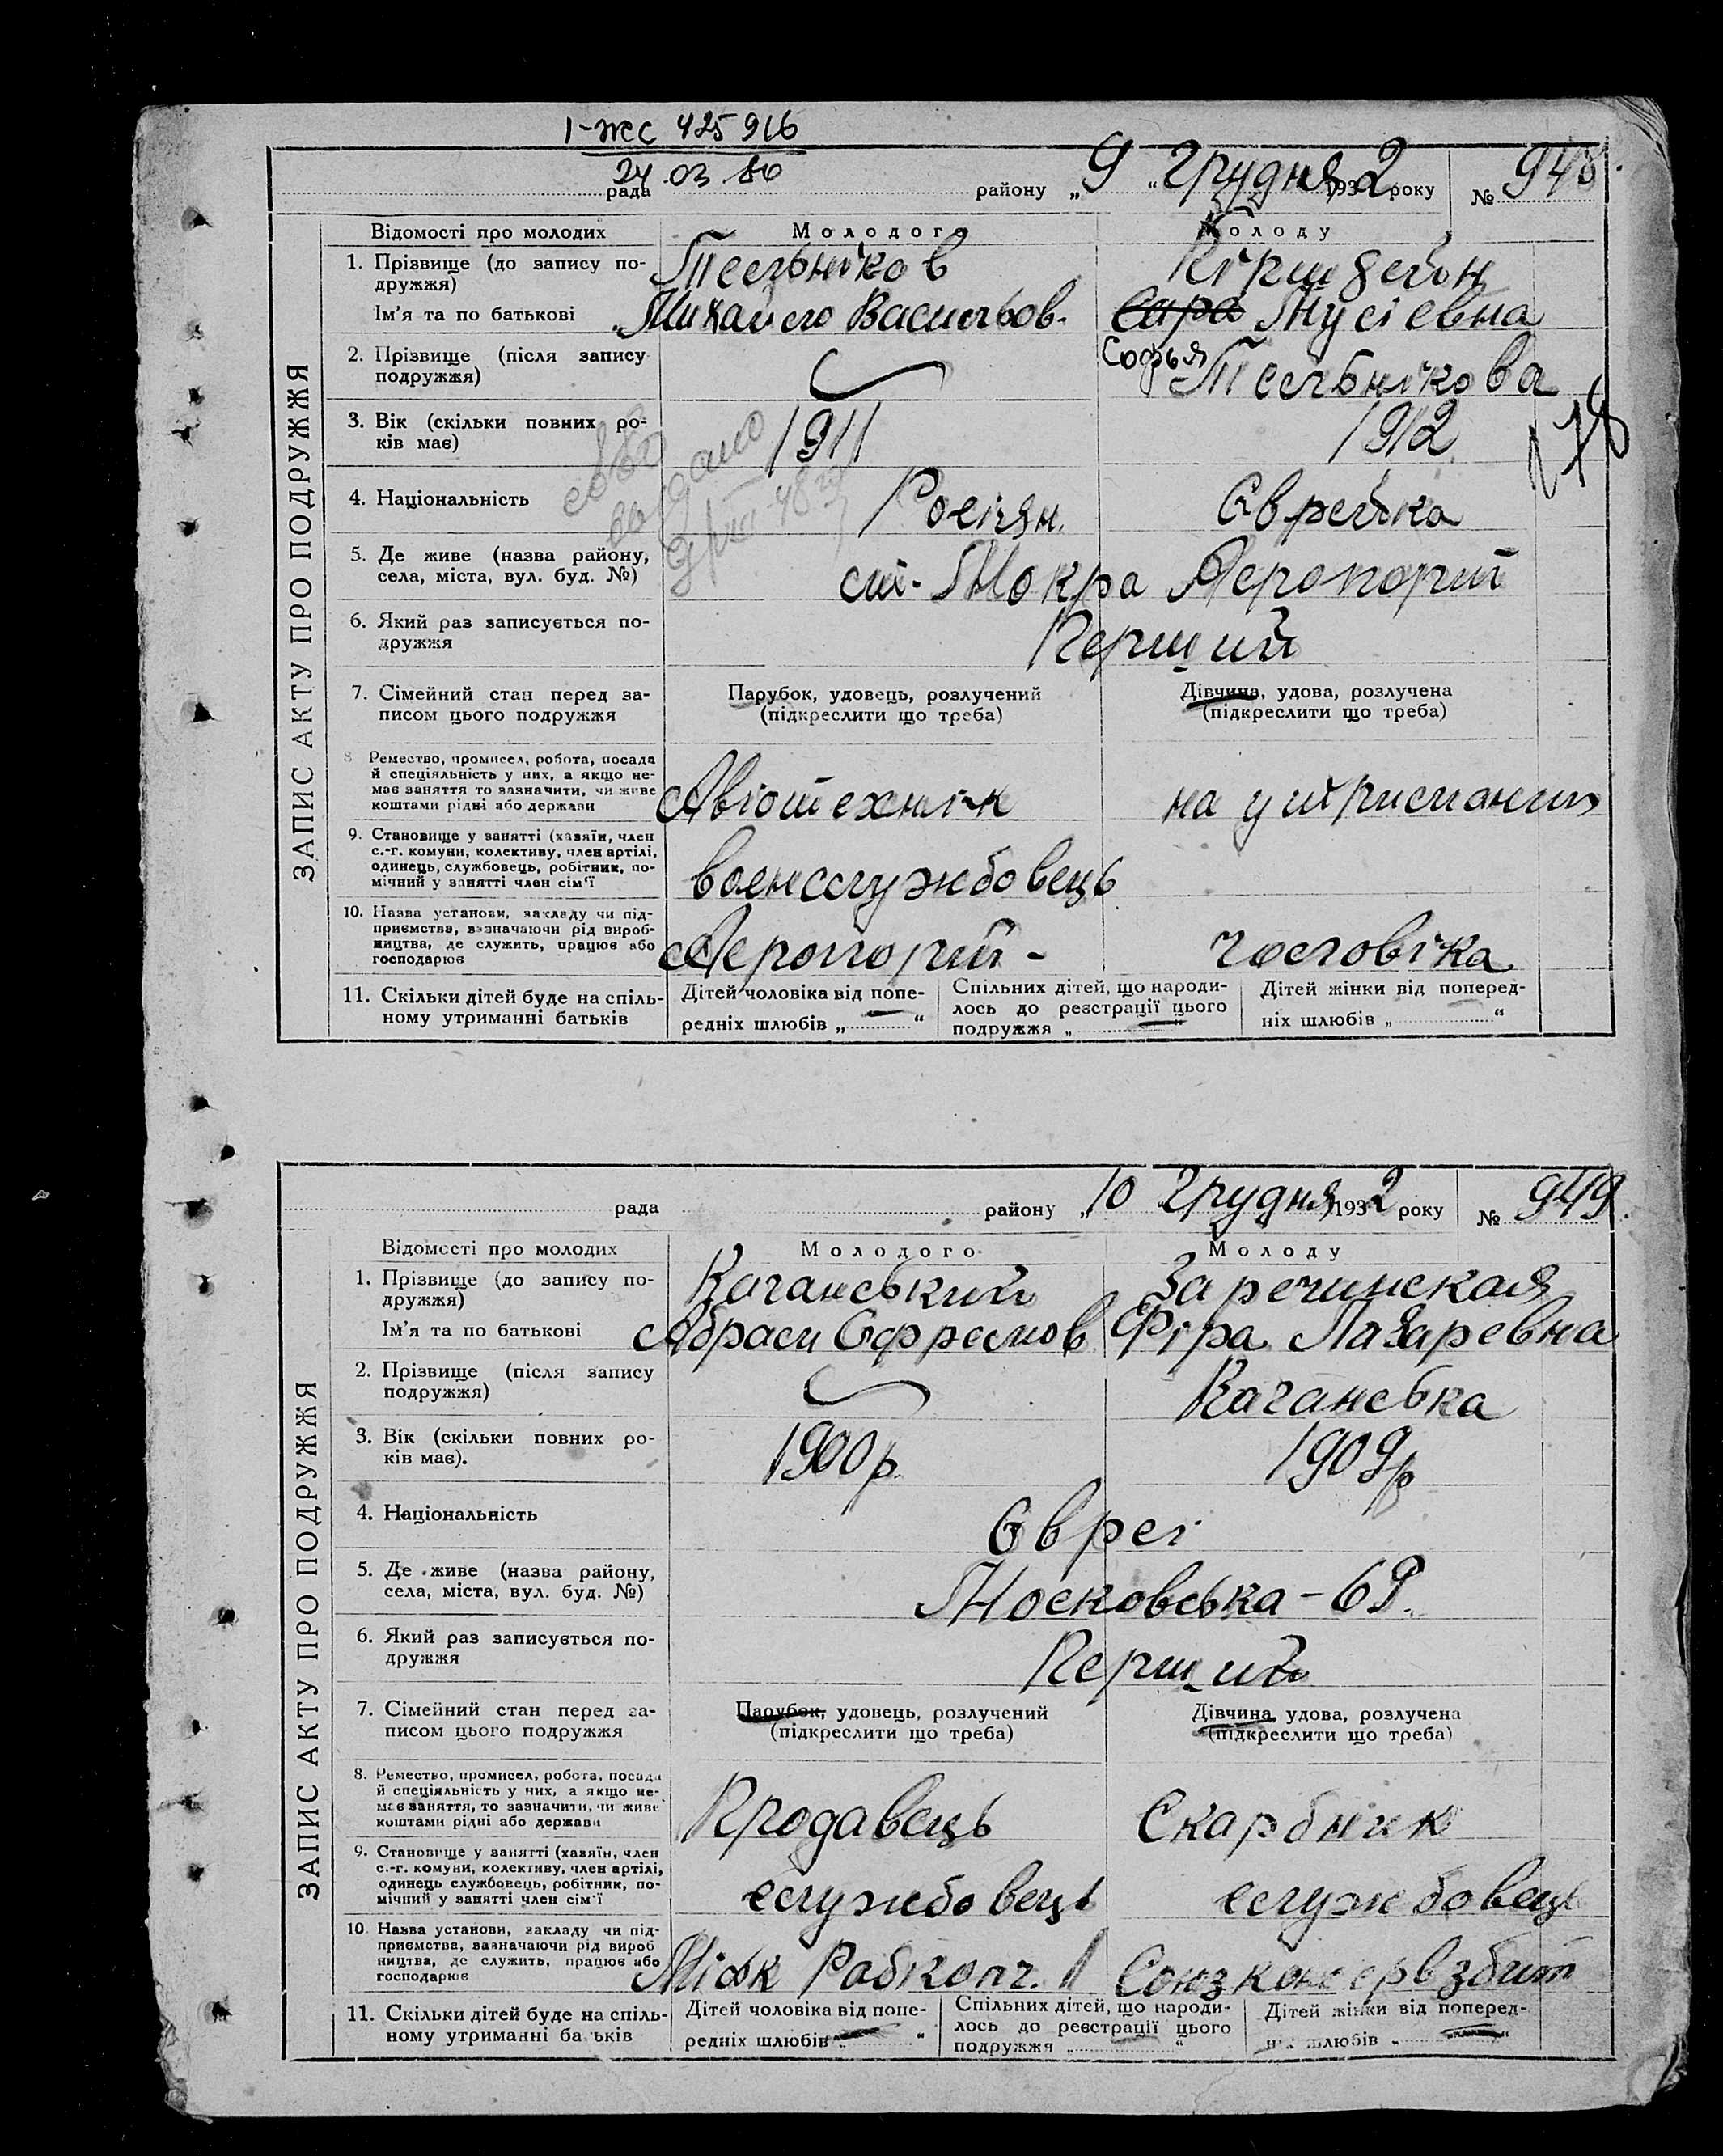 I-жс 425916
24.03.80
рада району „ 9 “ Грудня 1932 року № 948.
Відомості про молодих Молодого Молоду
1. Прізвище (до запису по-
дружжя)
Тельніков Кіршбейн
Ім'я та по батькові Михайло Васильов. Сара Мусіевна
Софья
2. Прізвище (після запису
подружжя)
Тельнікова
3. Вік (скільки повних ро-
ків має)
1911 1912
4. Національність Росіян. Єврейка
5. Де живе (назва району,
села, міста, вул. буд. №)
ст. Мокра Аеропорт
6. Який раз записується по-
дружжя
Перший
7. Сімейний стан перед за-
писом цього подружжя
Парубок, удовець, розлучений
(підкреслити що треба)
Дівчина, удова, розлучена
(підкреслити що треба)
8 Ремество, промисел, робота, посада
й спеціяльність у них, а якщо не-
має заняття то зазначити, чи живе
коштами рідні або держави
Авіотехнік на утриманни
9. Становище у занятті (хазяїн, член
с.-г. комуни, колективу, член артілі,
одинець, службовець, робітник, по-
мічний у занятті член сім'ї
воєнслужбовець
10. Назва установи, закладу чи під-
приємства, взазначаючи рід вироб-
ництва, де служить, працює або
господарює
Аеропорт - чоловіка
11. Скільки дітей буде на спіль-
ному утриманні батьків
Дітей чоловіка від попе-
редніх шлюбів „ — “
Спільних дітей, що народи-
лось до реєстрації цього
подружжя „ — “
Дітей жінки від поперед-
ніх шлюбів „ “
ЗАПИС АКТУ ПРО ПОДРУЖЖЯ
рада району „ 10 Грудня 1932 року № 949.
Відомості про молодих Молодого Молоду
1. Прізвище (до запису по-
дружжя)
Каганський Заречинская
Ім'я та по батькові Абрам Єфремов Фіра Лазаревна
2. Прізвище (після запису
подружжя)
Каганська
3. Вік (скільки повних ро-
ків має).
1900р. 1909р
4. Національність Євреі
5. Де живе (назва району,
села, міста, вул. буд. №)
Московська - 69.
6. Який раз записується по-
дружжя
Перший
7. Сімейний стан перед за-
писом цього подружжя
Парубок, удовець, розлучений
(підкреслити що треба)
Дівчина, удова, розлучена
(підкреслити що треба)
8. Ремество, промисел, робота, посада
й спеціяльність у них, а якщо не-
має заняття, то зазначити, чи живе
коштами рідні або держави
Продавець Скарбник
9. Становище у занятті (хазяїн, член
с.-г. комуни, колективу, член артілі,
одинець службовець, робітник, по-
мічний у занятті член сім'ї
службовець службовець
10. Назва установи, закладу чи під-
приємства, вазначаючи рід вироб
ництва, де служить, працює або
господарює
Робкопч. Союзконсервзбит
11. Скільки дітей буде на спіль-
ному утриманні батьків
Дітей чоловіка від попе-
редніх шлюбів „ — “
Спільних дітей, що народи-
лось до реєстрації цього
подружжя „ — “
Дітей жінки від поперед-
ніх шлюбів „ — “
ЗАПИС АКТУ ПРО ПОДРУЖЖЯ